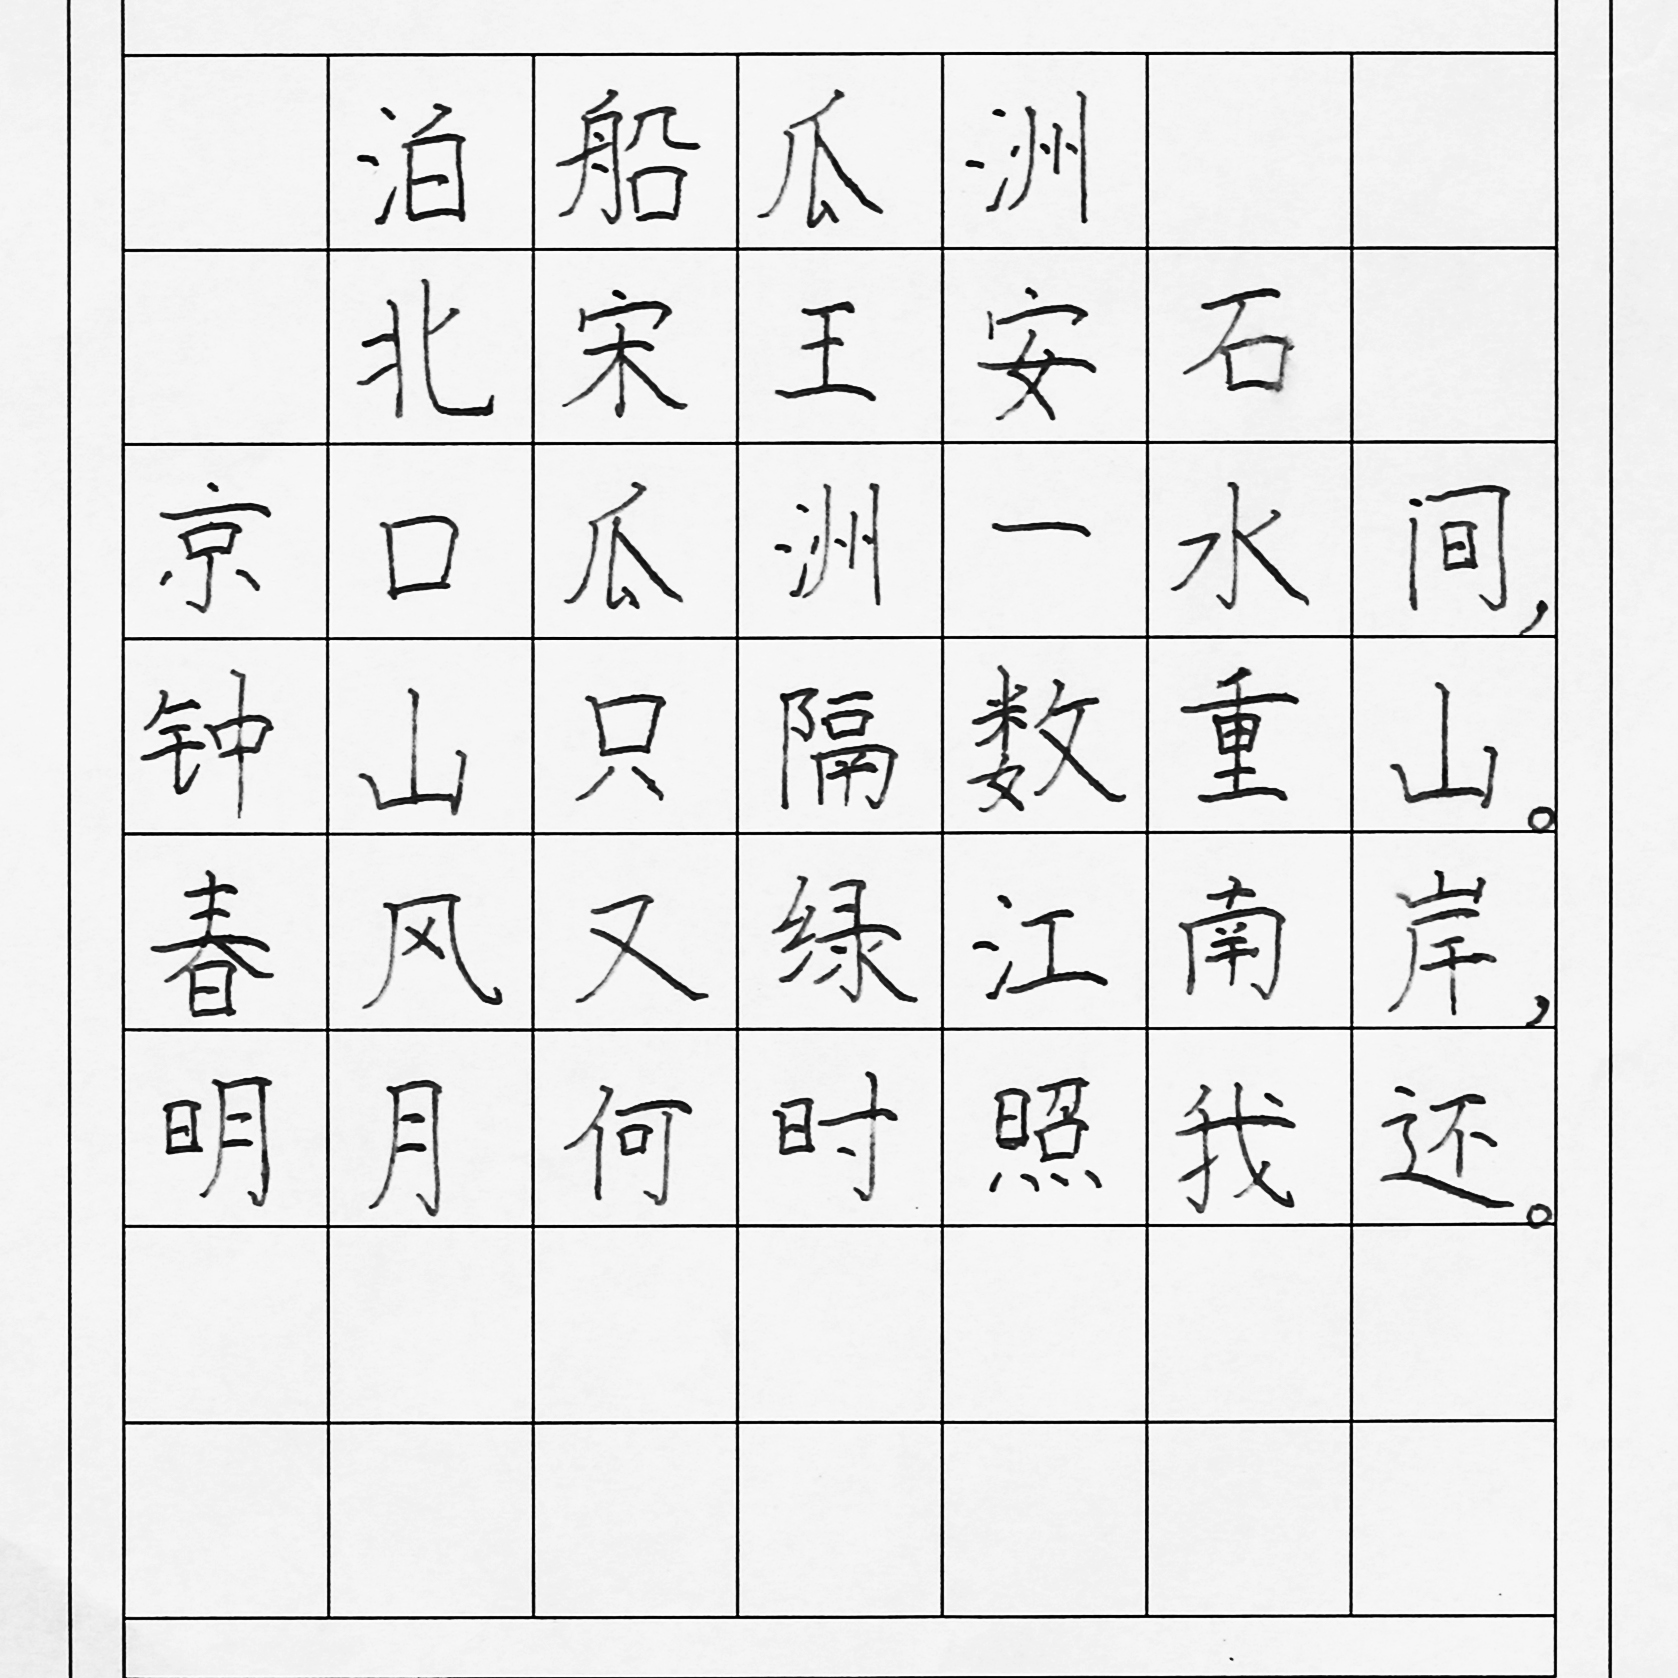 泊船瓜洲
北宋王安石
京口瓜洲一水间,
钟山只隔数重山。
春风又绿江南岸,
明月何时照我还。